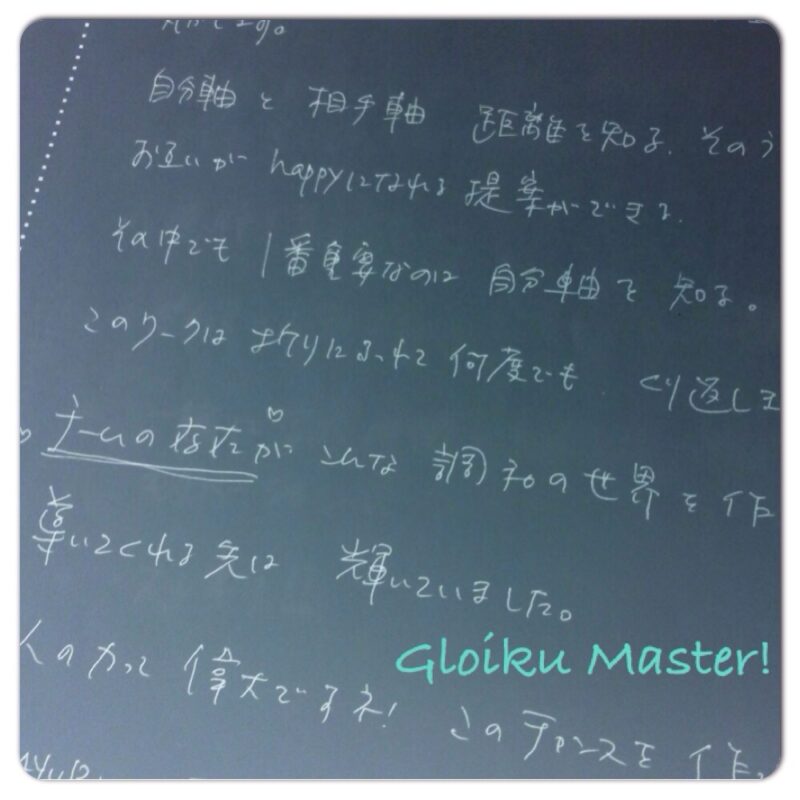 します。
自分軸と相手軸 距離を知る、そのう
お互いがhappyになれる提案ができる。
その中でも1番重要なのは自分軸を知る。
このワークは折りにふれて何度でも、くり返しま
の存在が♡こんな調和の世界を作
導いてくれる先は輝いていました。
人の力って偉大ですネ!このチャンスを作
Gloiku Master!